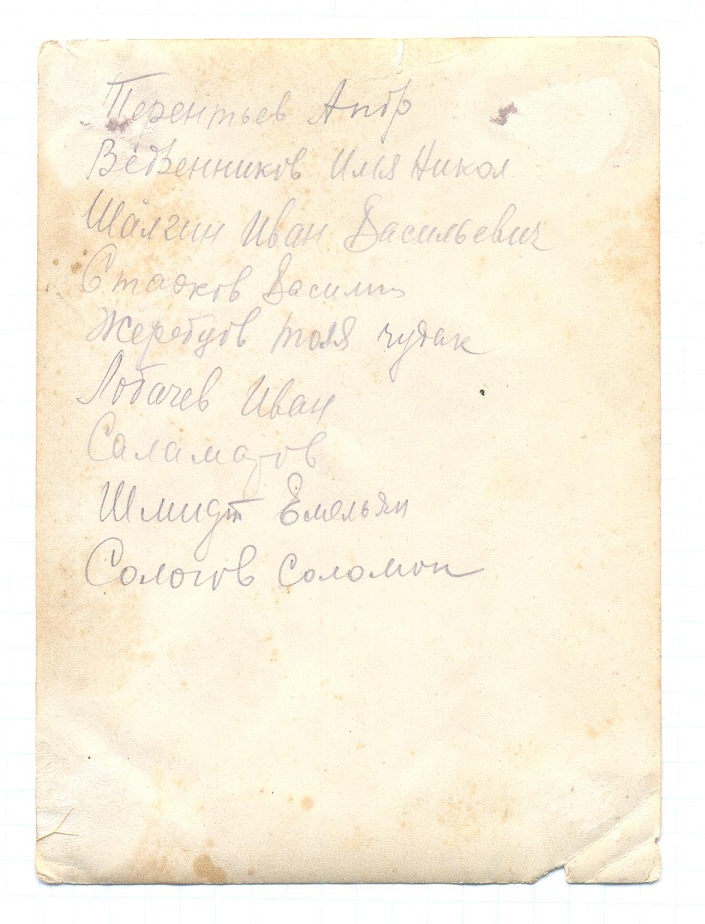 Терентьев
Веденников Имя Никол
Шалгин Иван Васильевич
Стадков Василий
Жеребцов толя чудак
Лобачев Иван
Саламатов
Шмидт Емельян
Сологов Соломон